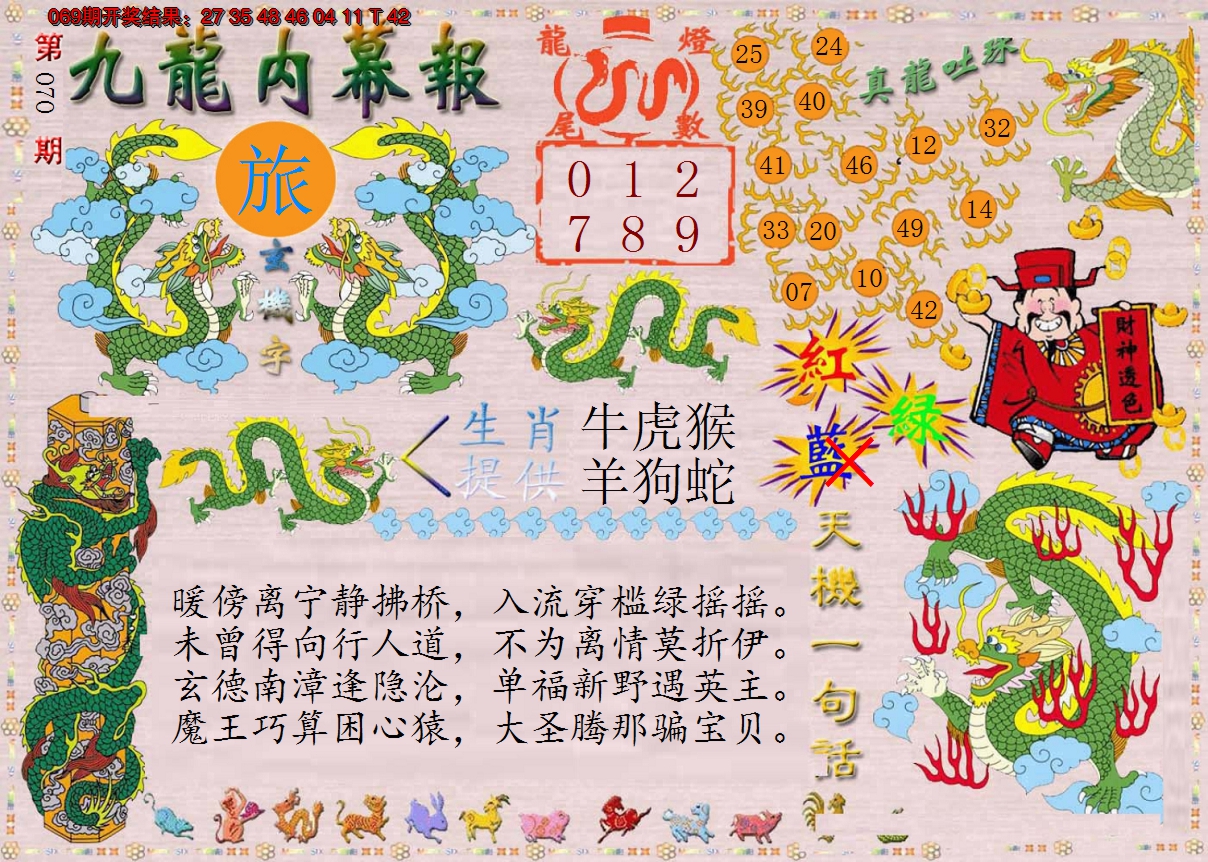 069期开奖结果：27 35 48 46 04 11 T 42
第070期
九龍内幕報
旅
玄機字
龍燈
尾數
0 1 2
7 8 9
真龍吐珠
25 24
39 40
12 32
41 46
14
33 20 49
07 10
42
財神透色
紅
绿
藍
生肖 牛虎猴
提供 羊狗蛇
天機一句话
暖傍离宁静拂桥，入流穿槛绿摇摇。
未曾得向行人道，不为离情莫折伊。
玄德南漳逢隐沦，单福新野遇英主。
魔王巧算困心猿，大圣腾那骗宝贝。